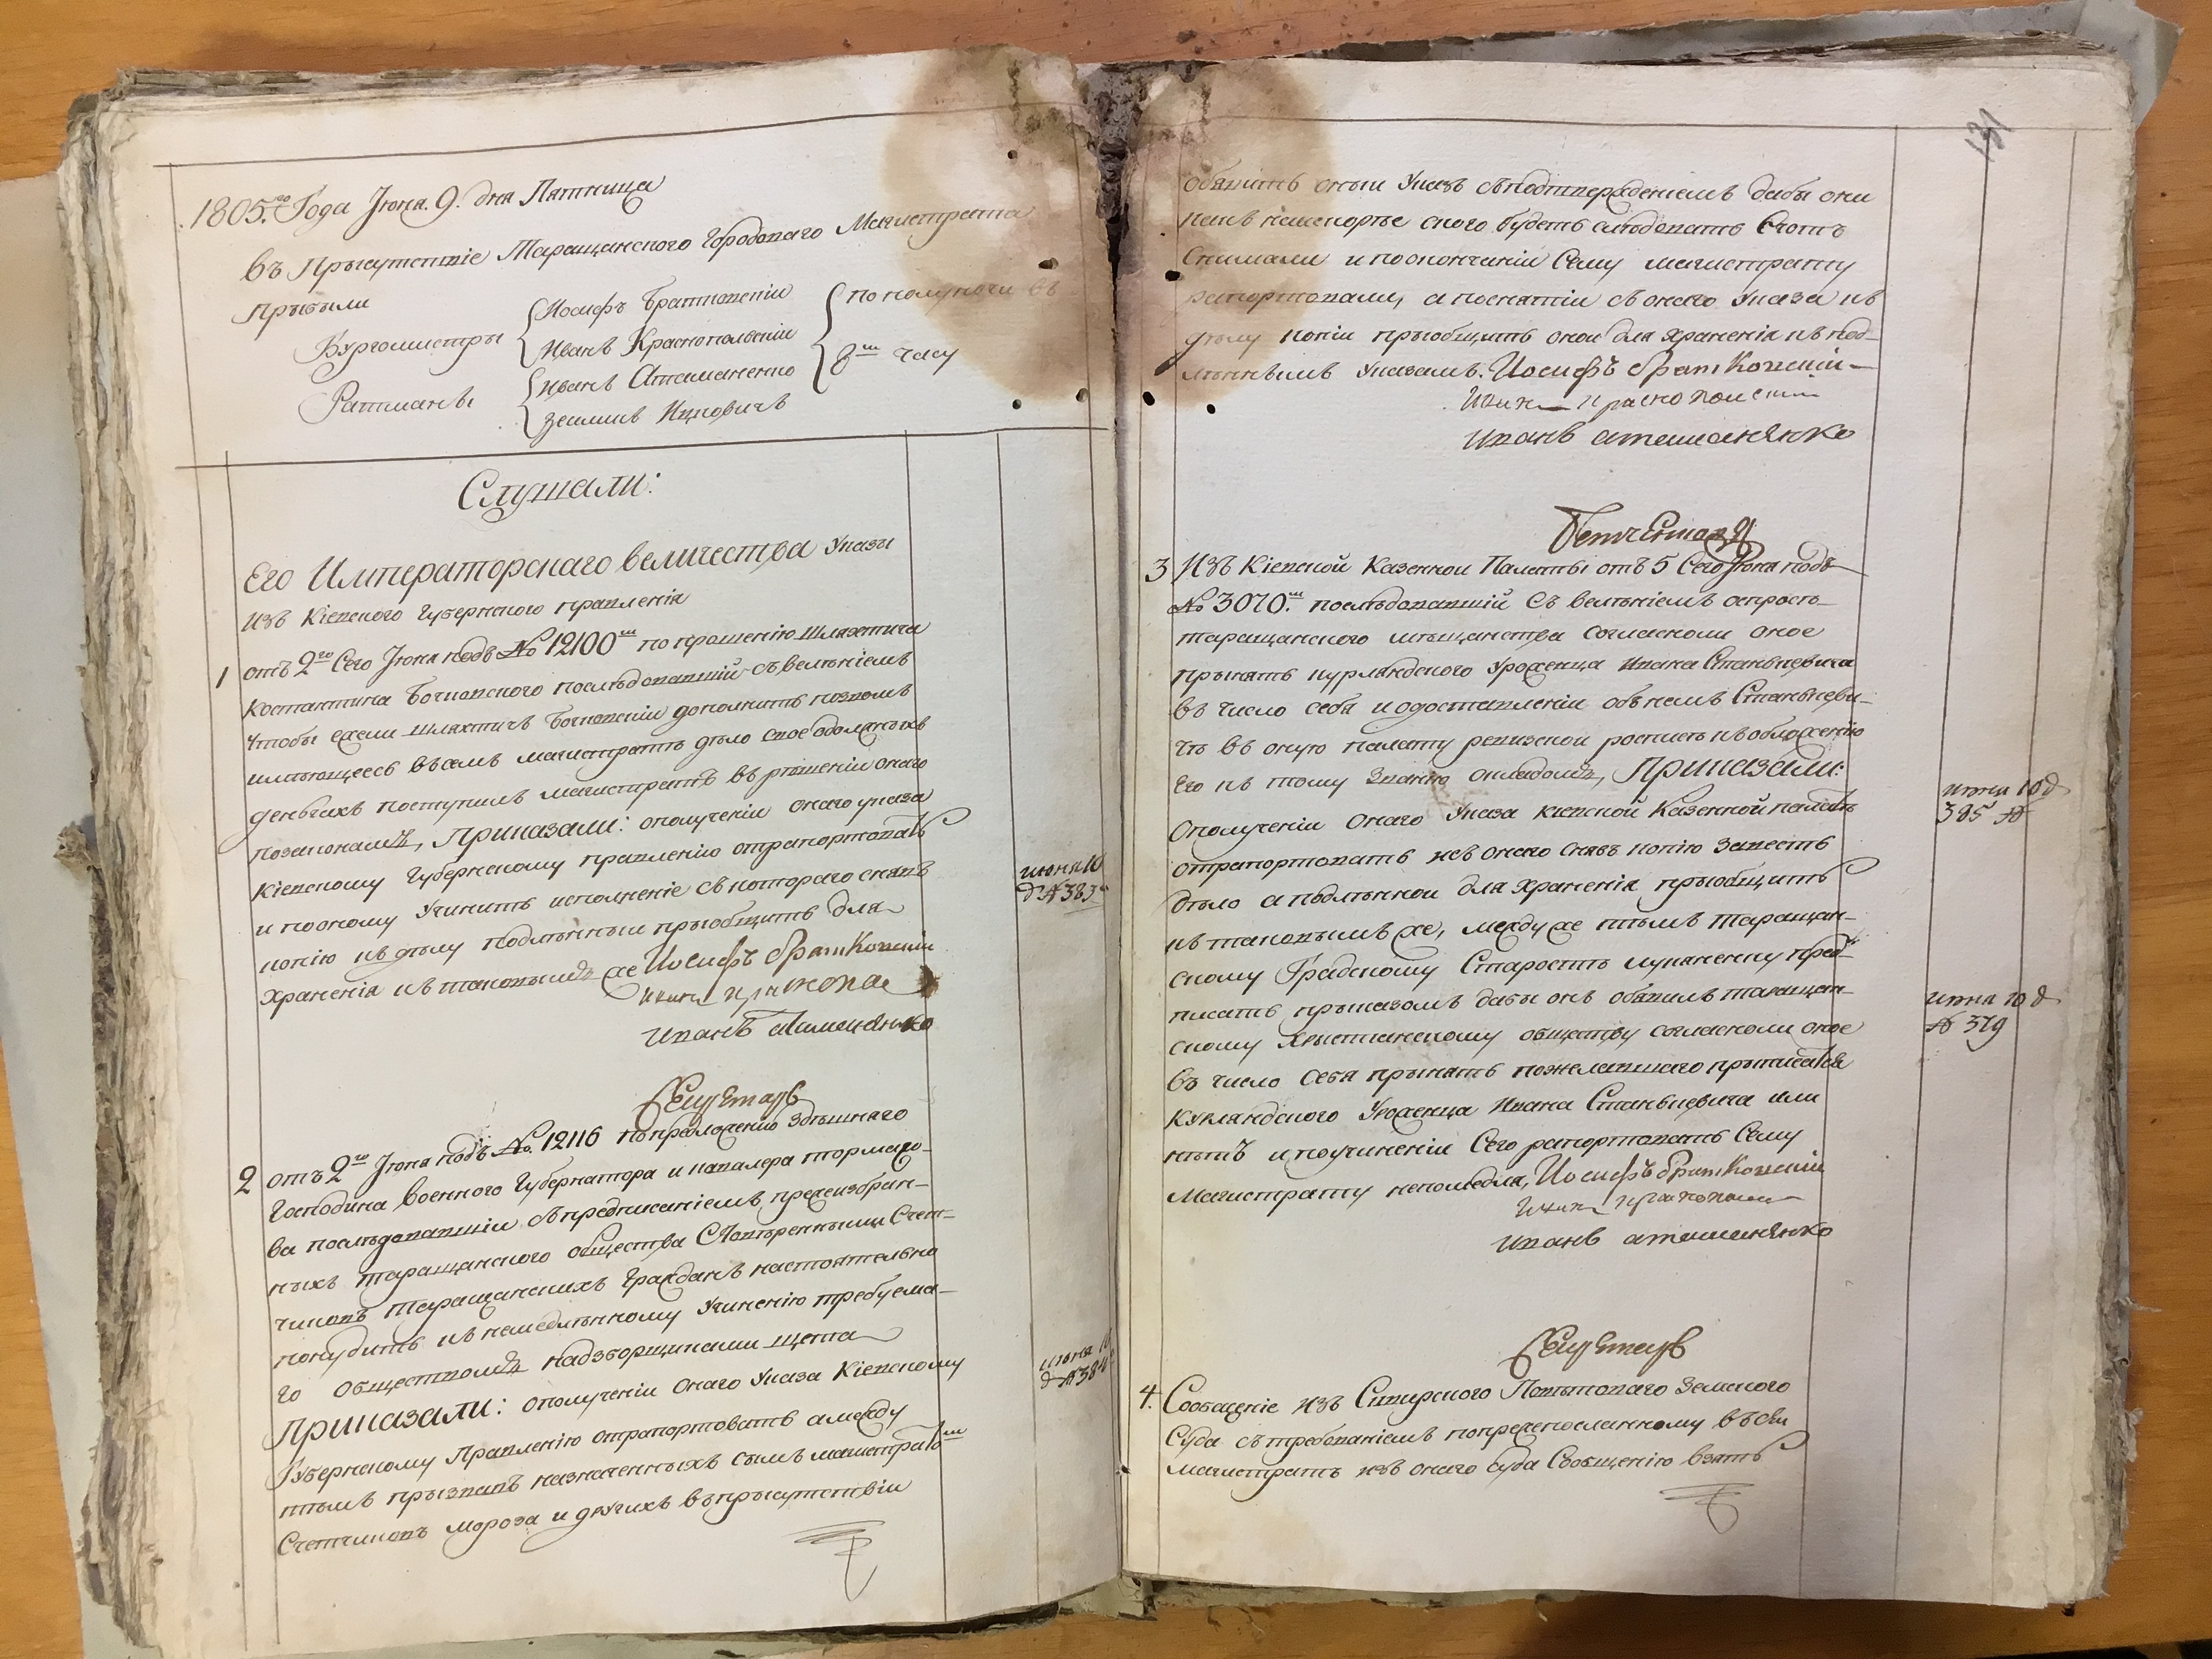 1805.го Года Июня. 9. дня Пятница
въ Присутствіе Таращанского Городоваго Магистрата
прибыли
Бургомистры
Иосифъ Братковскій
Иванъ Краснопольскій
Ратманы
Иванъ Атаманенко
Зеликъ Ицковичъ
по полуночи въ
8мъ часу
Слушали:
Его Императорскаго величества Указы
Изъ Кіевского Губернского правленія
1 отъ 2го Сего Июня подъ № 12100мъ по прошенію шляхтича
Костантина Бочковского последовавшій съ велѣніемъ
чтобы ежели шляхтичъ Бочковскій дополнитъ позвомъ
имѣющееся въ семъ магистратѣ дѣло свое о должныхъ
деньгахъ поступилъ магистратъ въ рѣшеніи онаго
позаконамъ, Приказали: ополученіи онаго указа
Кіевскому Губернскому правленію отрапортовать
и пооному Учинить исполненіе съ котораго снявъ
копію къ дѣлу подлѣнный приобщить для
храненія къ таковымъ же Иосифъ Братковскій
Иванъ
Иванъ Атаманенко
июня 10
д № 383
Секретарь
2 отъ 2го Июня подъ № 12116 по предложенію Здѣшнего
Господина Военного Губернатора и кавалера тормасо-
ва последовавшій съ предписаніемъ прежеизбран-
ныхъ таращанского общества Доверенными Счет-
чиковъ таращанскихъ Гражданъ настоятельно
понудить къ немедлѣнному Учиненію требуема-
го Обществомъ надзборщиками щета
Приказали: ополученіи Онаго Указа Кіевскому
Губернскому Правленію отрапортовать а между
тѣмъ призвавъ назначенныхъ симъ магистратомъ
Счетчиковъ мороза и другихъ въ присутствіи
июня 10
д № 384
131
обявить оный Указъ съ подтвержденіемъ дабы они
какъ наискорѣе сього будетъ слѣдовать Счотъ
Снимали и по окончаніи Сему магистрату
рапортовали, а поснятіи съ онаго Указа къ
дѣлу копіи приобщить оной для храненія къ под-
лѣннымъ Указамъ. Иосифъ Братковскій
Иванъ Краснопольскій
Иванъ атаманенко
Секретарь
3 Изъ Кіевской Казенной Палаты отъ 5 Сего Июня подъ
№ 3070.мъ последовавшій Съ велѣніемъ спросить
таращанского мѣщанства согласноли оное
принять курляндского Уроженца Ивана Станьцевича
въ число себя и одоставленіи объ немъ Станьцеви-
чѣ въ оную палату ревизской росписи къ обложенію
Его къ тому званію окладомъ, Приказали:
Ополученіи Онаго Указа кіевской Казенной палатѣ
отрапортовать изъ онаго снявъ копію Завесть
дѣло а подлѣнной для храненія приобщить
къ таковымъ же, между же тѣмъ таращан-
скому Градскому Старостѣ луканенку пред-
писать приказомъ дабы онъ обявилъ таращан-
скому Христианскому обществу согласноли оное
въ число Себя принять пожелавшаго приписатся
Курляндского Уроженца Ивана Станьцевича или
нѣтъ и поучиненіи Сего рапортовать Сему
Магистрату непомедля, Иосифъ Братковскій
Иванъ
Иванъ атаманенко
июня 10 д
385 №
июня 10 д
№ 379
Секретарь
4. Сообщеніе изъ Сквирского Повѣтоваго Земского
Суда съ требованіемъ по прежепосланному въ сей
магистратъ изъ онаго Суда Сообщенію взять